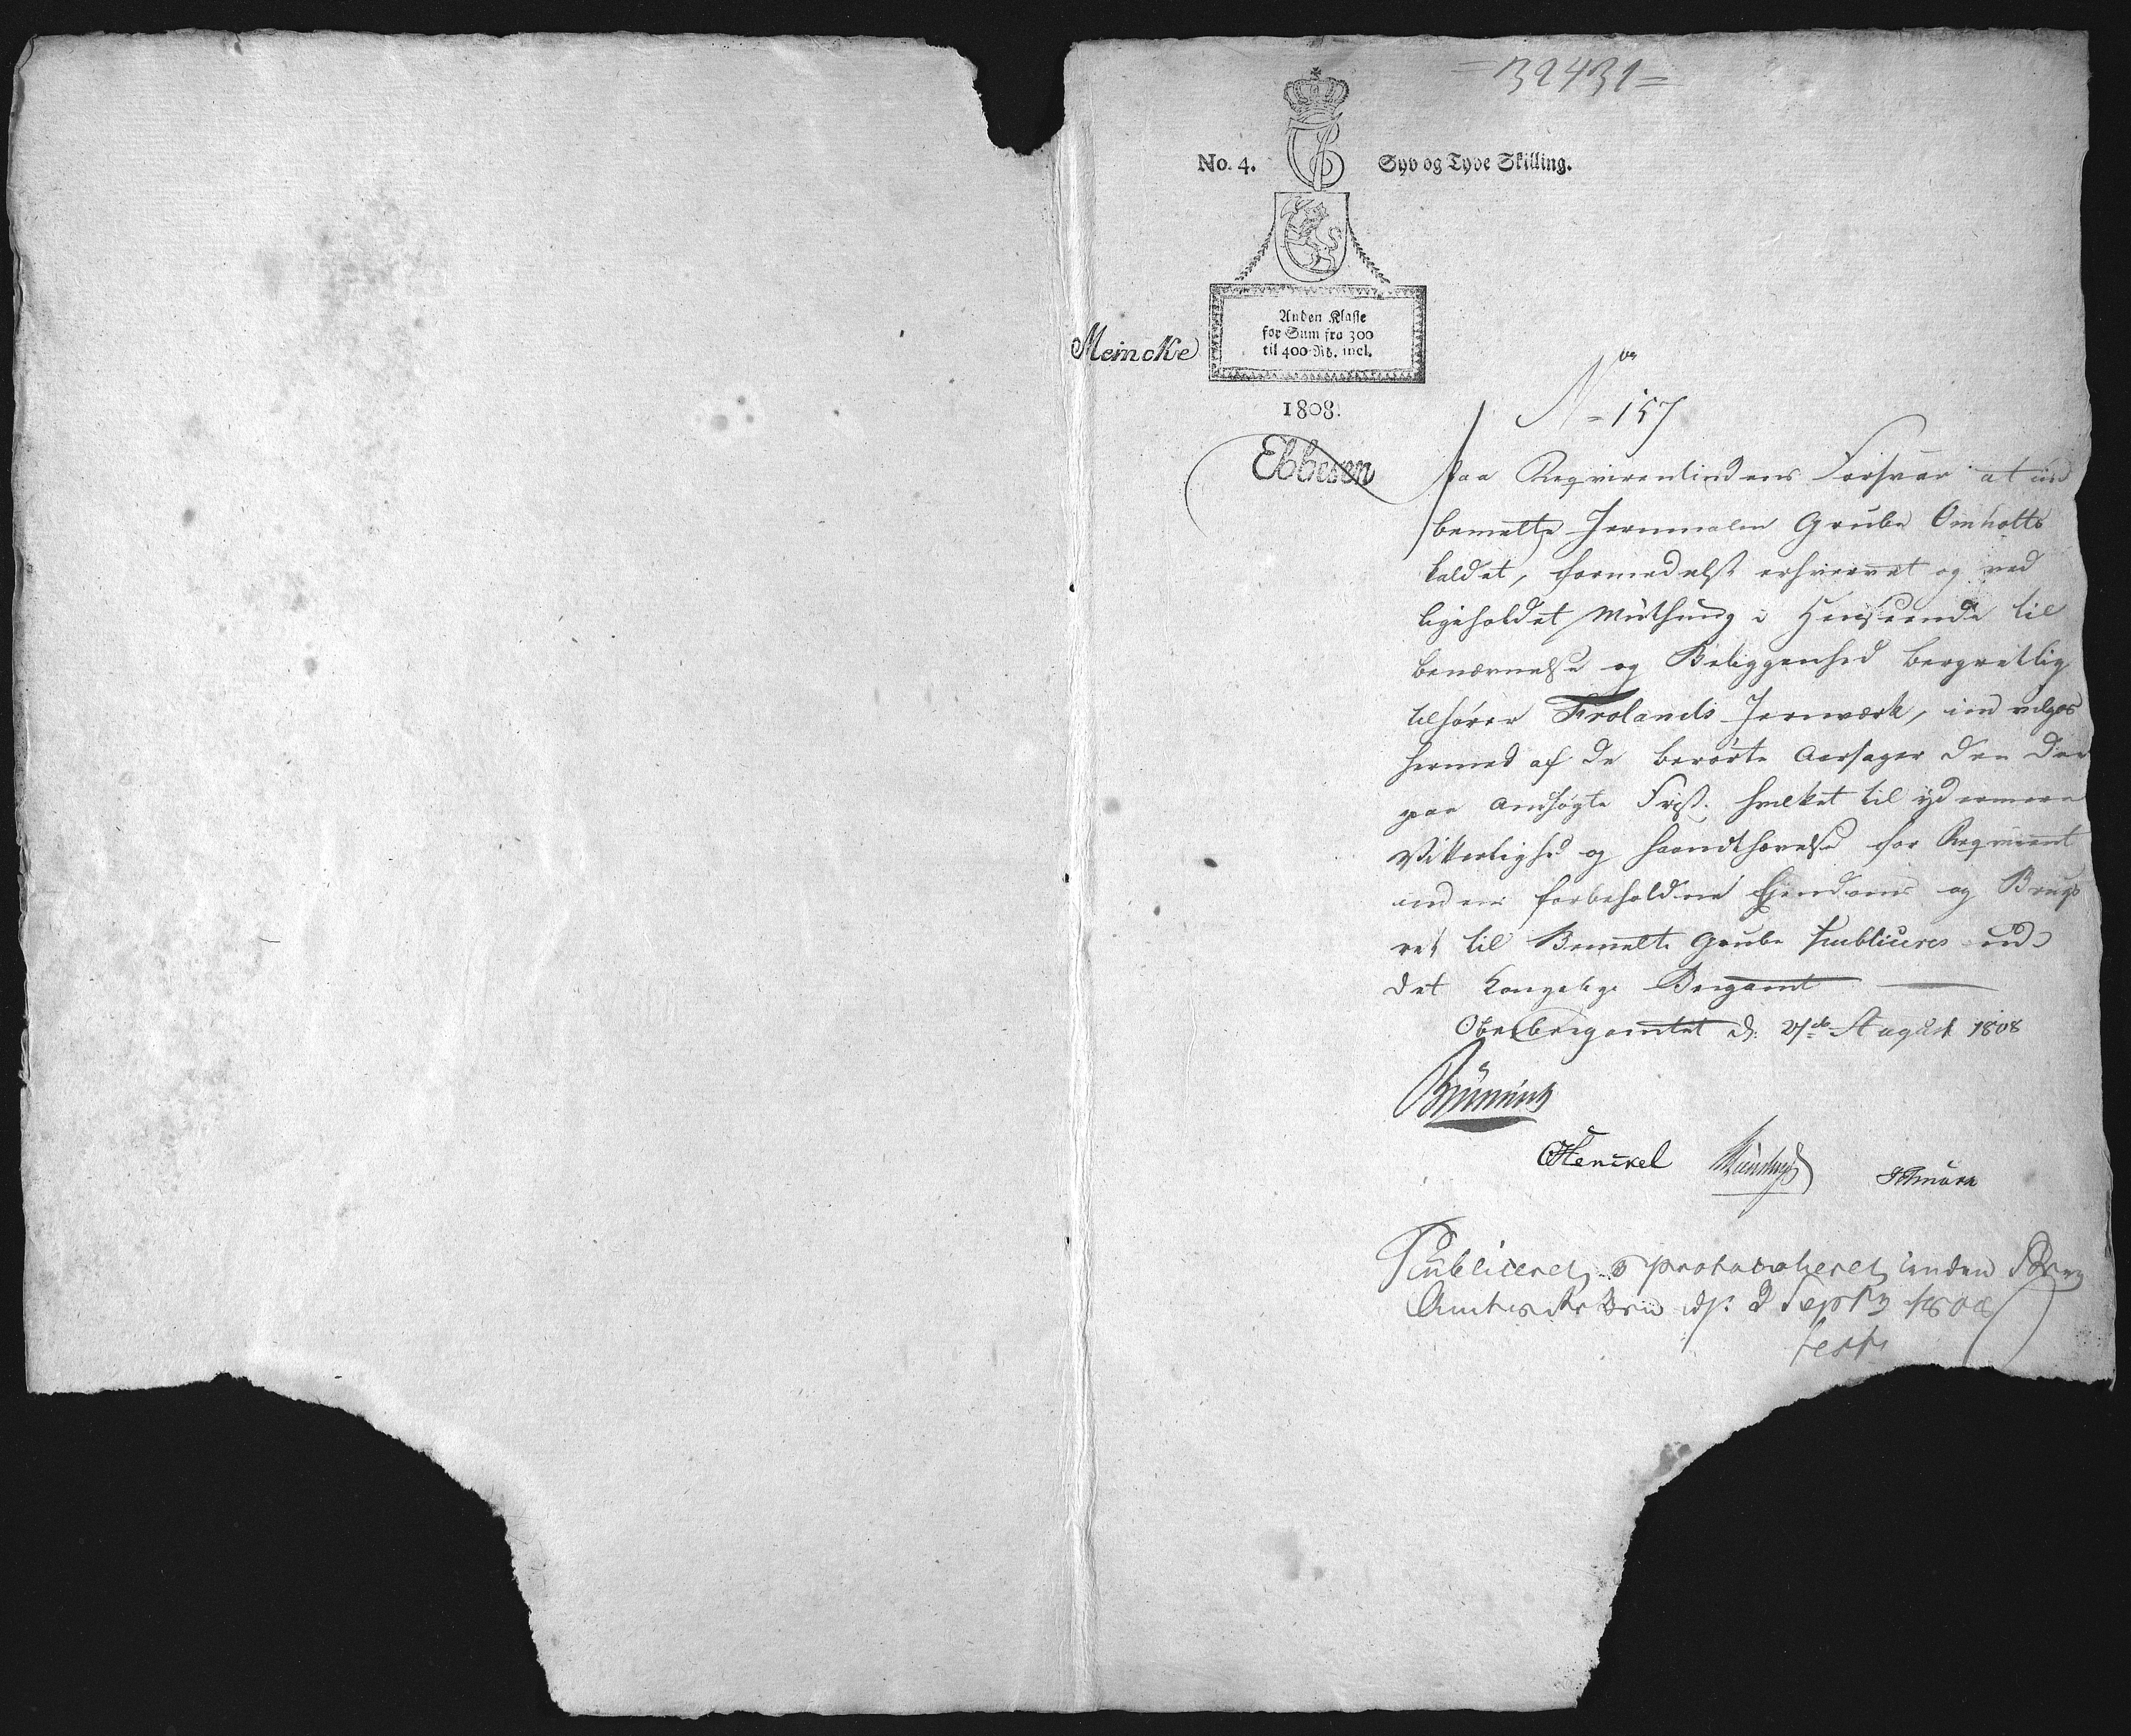 =39431=
No. 4. Syv og Tyve Skilling.
Anden Klasse
for Sum fra 300
til 400 Rd. incl.
Meincke
1808.
Ebbesen
No 157
Paa Reqvirentindens Forsvar at ind
bemelte Jernmalm Grube Omholts
kaldet, formedelst erhvervet og ved
ligeholdet Muthung i Henseende til
benævnelse og Beliggenhed bergretlig
tilhører Frolands Jernværk, ind vilges
hermed af de berørte Aarsager den der
paa ansøgte Frist. hvilket til ydermere
Vitterlighed og haandthævelse for Reqvirent
indens forbeholdne Ejendoms og Brugs
ret til Bemelte Grube publiceres ved
det Kongelige Bergamt
Oberbergamtet d: 27de August 1808
Brünnich
Henckel
Publiceret o protocolleret inden Berg
Amts Retten d: 2 Sept 1808
test